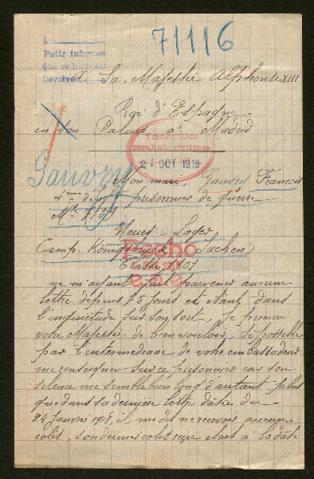 71116
A
Pedir informes
Devolver
A Sa Majesté Alphonse XIII
Roi d'Espagne
en son Palais à Madrid
Gauvry
Mon mari, Gauvry François
prisonnier de guerre
Mle
Neues Lager
Camp. Königsbrück (Sachen)
Fecho
ne m'ayant fait parvenir aucune
lettre depuis 75 jours et étant dans
l'inquiétude sur son sort, je prie
votre Majesté de bien vouloir, si possible
par l'intermédiaire de votre ambassadeur
me renseigner sur ce prisonnier car son
silence me semble bien long d'autant plus
que dans sa dernière lettre datée du
24 Janvier 1918, il me dit ne recevoir aucun
colis, son dernier colis reçu étant à la date